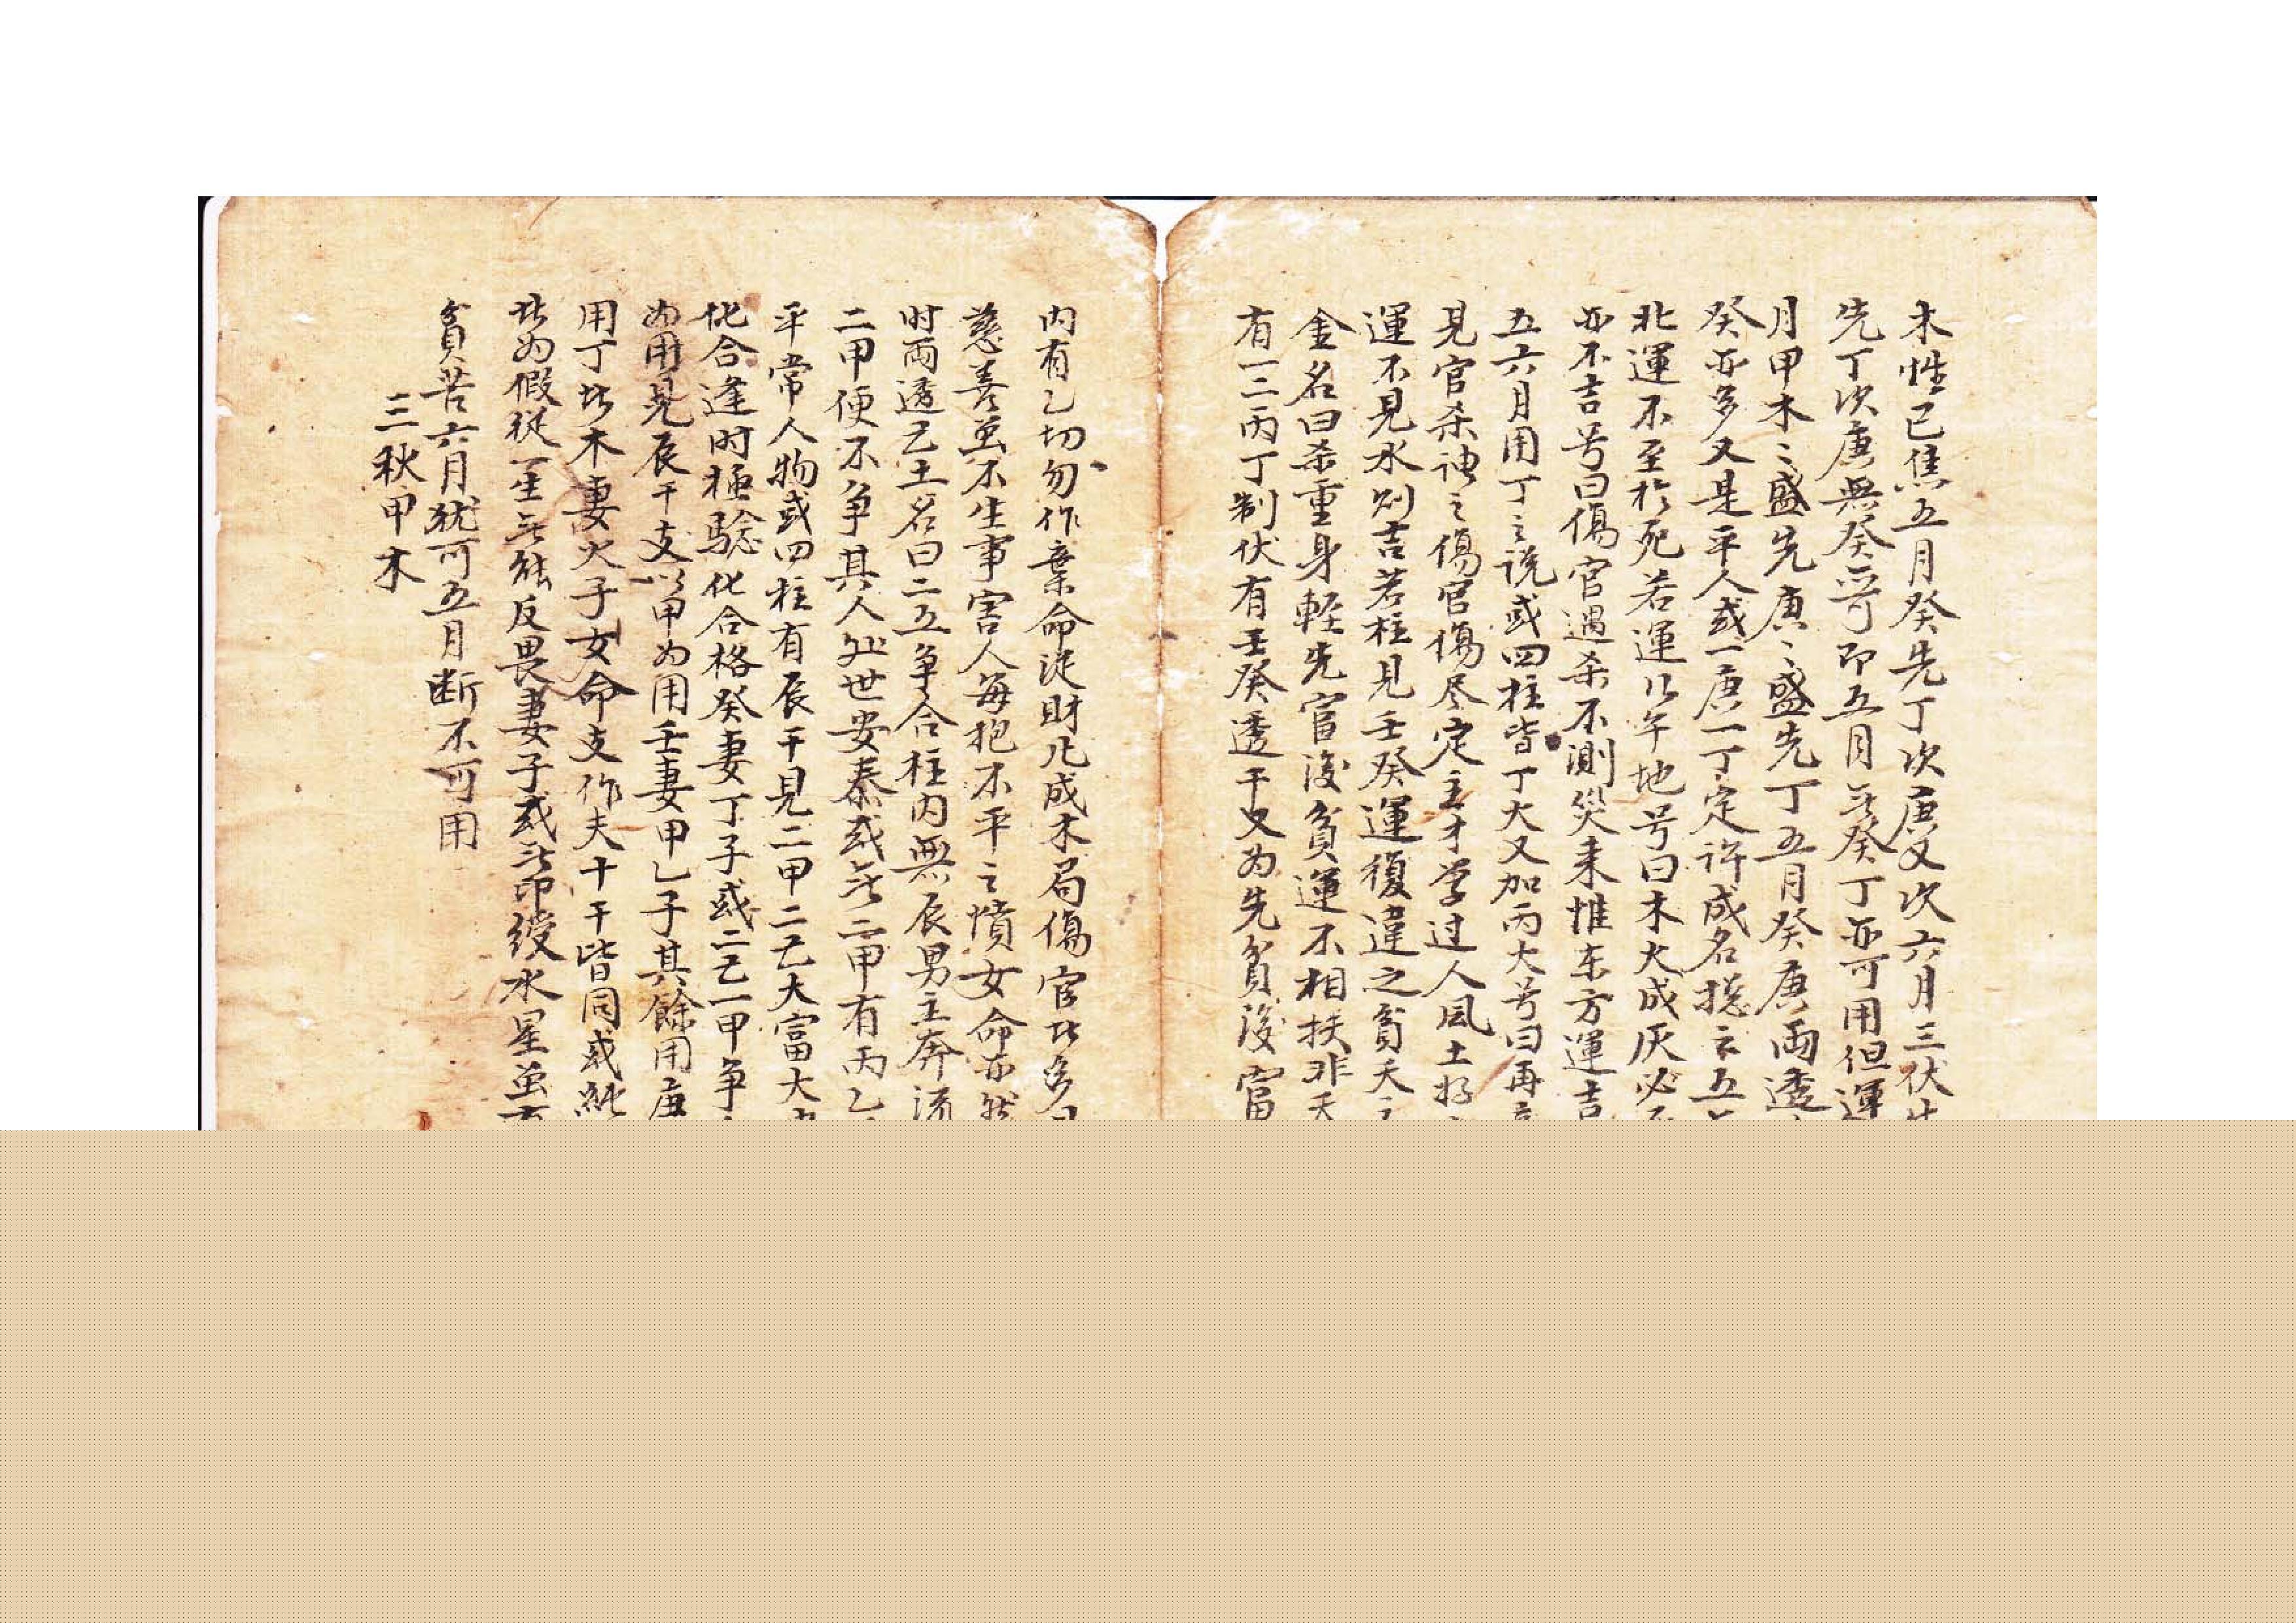 木性已焦五月癸先丁次庚又次六月三伏生
先丁次庚無癸亦可即五月无癸丁亦可用但運
月甲木〻盛先庚〻盛先丁五月癸庚兩透
癸亦多又是平人或一庚一丁定許成名揔云五
北運不至於死若運以午地号曰木火成灰必
亦不吉号曰傷官遇杀不測災来惟东方運吉
五六月用丁之说或四柱皆丁火又加丙火号曰再
見官杀神之傷官傷尽定主才学过人風土
運不見水则吉若柱見壬癸運復違之貧夭
金名曰杀重身輕先富後貧運不相扶非夭
有一二丙丁制伏有壬癸透干又为先貧後富
内有乙切勿作棄命従財凡成木局傷官
慈善虽不生事害人每抱不平之憤女命亦然
时两透己土名曰二土争合柱内無辰男主奔流
二甲便不争其人処世安泰或无二甲有丙乙
平常人物或四柱有辰干見二甲二己大富大
化合逢时極驗化合格癸妻丁子或二己一甲争
为用見辰干支以甲为用壬妻甲乙子其餘用庚
用丁比木妻火子女命支作夫十干皆同或
此为假從一生无能反畏妻子或无印綬水星虽
貧苦六月犹可五月断不可用
三秋甲木